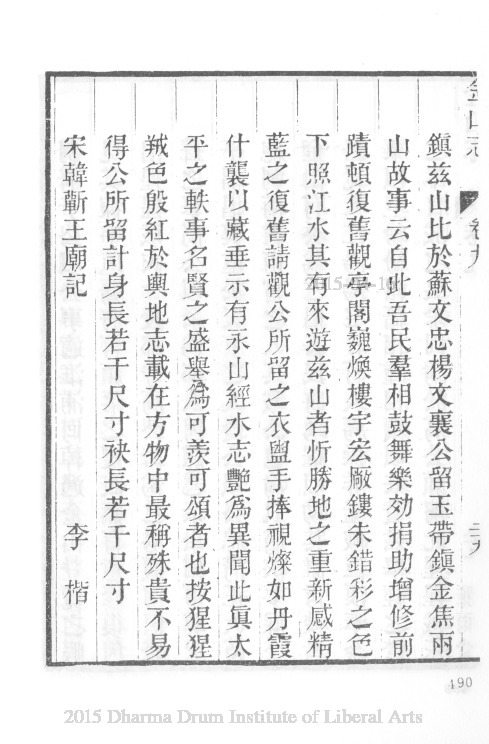 金山志 卷九 二九
鎮茲山比於蘇文忠楊文襄公留玉帶鎮金焦兩
山故事云自此吾民羣相鼓舞樂効捐助增修前
蹟頓復舊觀亭閣巍煥樓宇宏厰鏤朱錯彩之色
下照江水其有來遊茲山者忻勝地之重新感精
藍之復舊請觀公所留之衣盥手捧視燦如丹霞
什襲以藏垂示有永山經水志艷爲異聞此眞太
平之軼事名賢之盛舉爲可羨可頌者也按猩猩
羢色殷紅於輿地志載在方物中最稱殊貴不易
得公所留計身長若干尺寸袂長若干尺寸
宋韓蘄王廟記 李楷
490
2015 Dharma Drum Institute of Liberal Arts